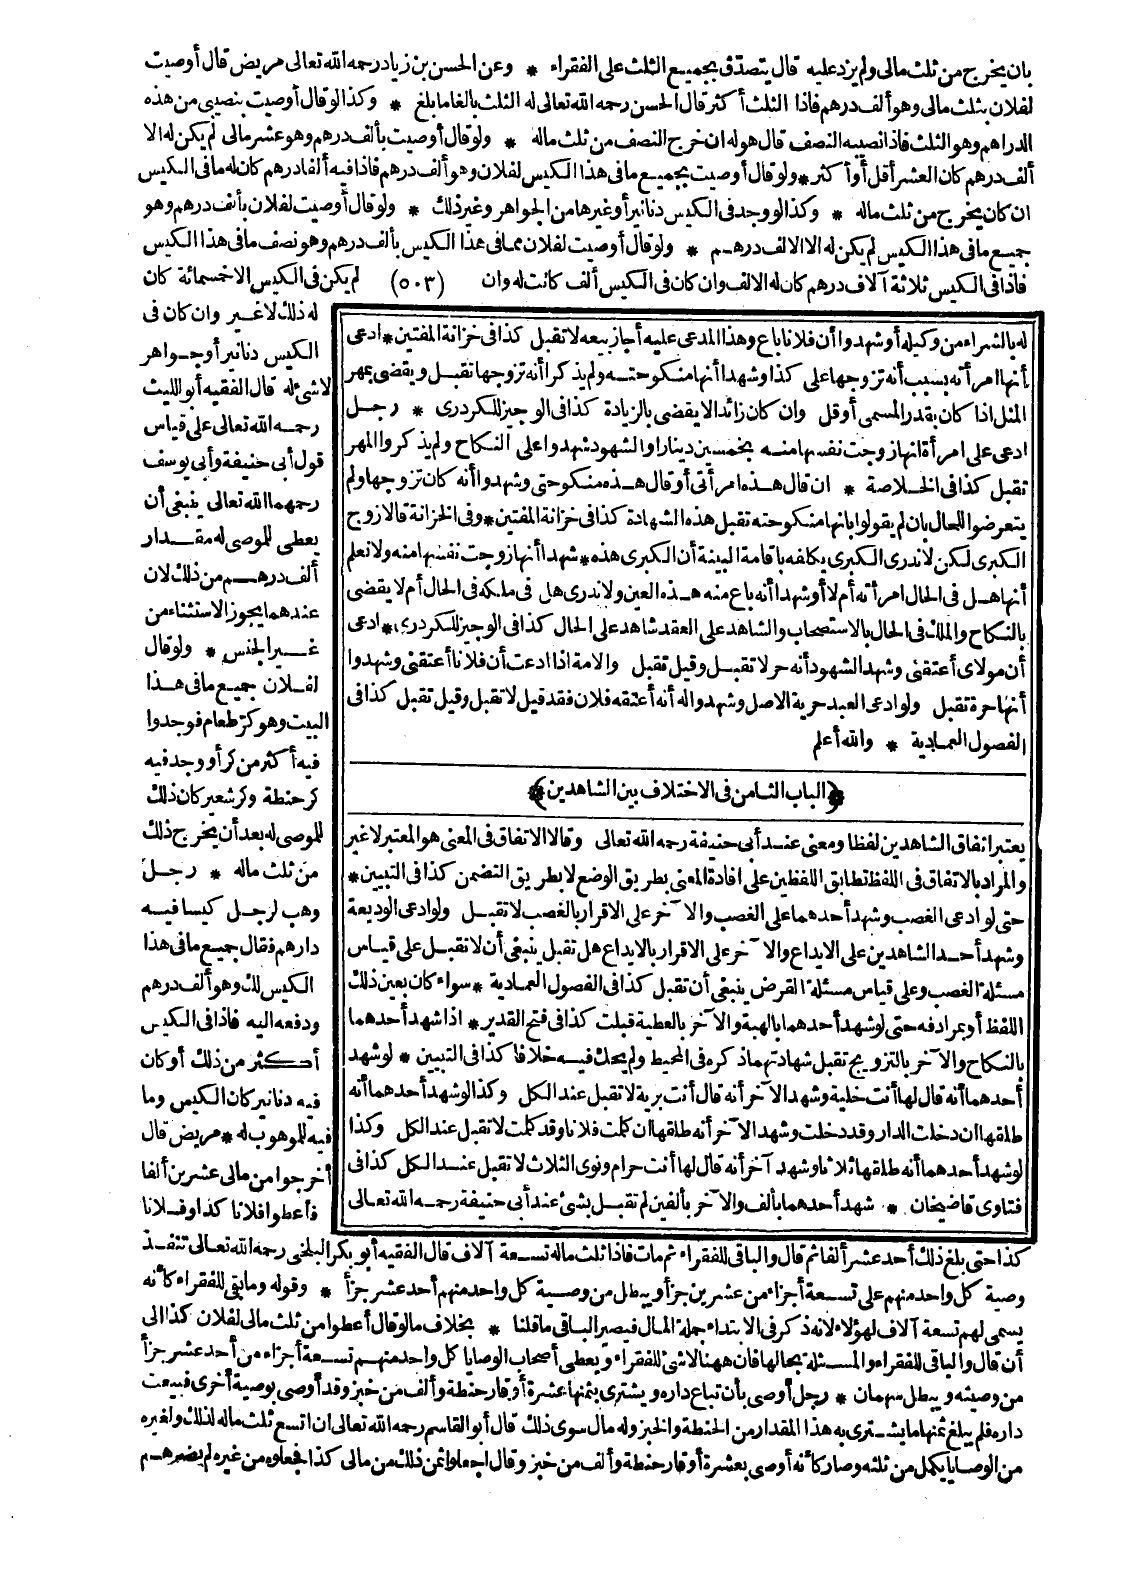 بان يخرج من ثلث مالى ولم يزد عليه قال يتصدق بجميع الثلث على الفقراء * وعن الحسن بن زياد رحمه الله تعالى مريض قال أوصيت
لفلان بثلث مالى وهو ألف درهم فاذا الثلث أكثر قال الحسن رحمه الله تعالى له الثلث بالغا ما بلغ * وكذا لو قال أوصيت بنصيبى من هذه
الدراهم وهو الثلث فاذا نصيبه النصف قال هو له ان خرج النصف من ثلث ماله * ولو قال أوصيت بألف درهم وهو عشر مالى لم يكن له الا
ألف درهم كان العشر أقل أو أكثر * ولو قال أوصيت بجميع مافى هذا الكيس لفلان وهو ألف درهم فاذا فيه ألفا درهم كان له مافى الكيس
ان كان يخرج من ثلث ماله * وكذا لو وجد فى الكيس دنانير أو غيرها من الجواهر وغير ذلك * ولو قال أوصيت لفلان بألف درهم وهو
جميع مافى هذا الكيس لم يكن له الا الالف درهم * ولو قال أوصيت لفلان مما فى هذا الكيس بألف درهم وهو نصف مافى هذا الكيس
فاذا فى الكيس ثلاثة آلاف درهم كان له الالف وان كان فى الكيس ألف كانت له وان (٥٠٣) لم يكن فى الكيس الا خمسمائة كان
له ذلك لا غير وان كان فى
الكيس دنانير أو جواهر
لاشئ له قال الفقيه أبو الليث
رحمه الله تعالى على قياس
قول أبى حنيفة وأبى يوسف
رحمهما الله تعالى ينبغى أن
يعطى للموصى له مقدار
ألف درهم من ذلك لان
عندهما يجوز الاستثناء من
غير الجنس * ولو قال
لفلان جميع مافى هذا
البيت وهو كر طعام فوجدوا
فيه أكثر من كر أو وجد فيه
كر حنطة وكر شعير كان ذلك
للموصى له بعد أن يخرج ذلك
من ثلث ماله * رجل
وهب لرجل كيسا فيه
دارهم فقال جميع مافى هذا
الكيس لك وهو ألف درهم
ودفعه اليه فاذا فى الكيس
أكثر من ذلك أو كان
فيه دنانير كان الكيس وما
فيه للموهوب له * مريض قال
أخرجوا من مالى عشرين ألفا
فأعطوا فلانا كذا وفلانا
له بالشراء من وكيله أو شهدوا أن فلانا باع وهذا المدعى عليه أجاز بيعه لا تقبل كذا فى خزانة المفتين * ادعى
أنها امرأته بسبب أنه تزوجها على كذا وشهدا أنها منكوحته ولم يذكرا أنه تزوجها تقبل ويقضى بمهر
المثل اذا كان بقدر المسمى أو قل وان كان زائدا لا يقضى بالزيادة كذا فى الوجيز للكردرى * رجل
ادعى على امرأة انها زوجت نفسها منه بخمسين دينارا والشهود شهدوا على النكاح ولم يذكروا المهر
تقبل كذا فى الخلاصة * ان قال هذه امرأتى أو قال هذه منكوحتى وشهدوا أنه كان تزوجها ولم
يتعرضوا للحال بان لم يقولوا بانها منكوحته تقبل هذه الشهادة كذا فى خزانة المفتين * وفى الخزانة قالا زوج
الكبرى لكن لا ندرى الكبرى يكلفه باقامة البينة أن الكبرى هذه * شهدا أنها زوجت نفسها منه ولا نعلم
أنها هل فى الحال امرأته أم لا أو شهدا أنه باع منه هذه العين ولا ندرى هل فى ملكه فى الحال أم لا يقضى
بالنكاح والملك فى الحال بالاستصحاب والشاهد على العقد شاهد على الحال كذا فى الوجيز للكردرى * ادعى
أن مولاى أعتقنى وشهد الشهود أنه حر لا تقبل وقيل تقبل والامة اذا ادعت أن فلانا أعتقنى وشهدوا
أنها حرة تقبل ولو ادعى العبد حرية الاصل وشهدوا له أنه أعتقه فلان فقد قيل لا تقبل وقيل تقبل كذا فى
الفصول العمادية * والله أعلم
﴿الباب الثامن فى الاختلاف بين الشاهدين﴾
يعتبر اتفاق الشاهدين لفظا ومعنى عند أبى حنيفة رحمه الله تعالى وقالا الاتفاق فى المعنى هو المعتبر لا غير
والمراد بالاتفاق فى اللفظ تطابق اللفظين على افادة المعنى بطريق الوضع لا بطريق التضمن كذا فى التبيين *
حتى لو ادعى الغصب وشهد أحدهما على الغصب والآخر على الاقرار بالغصب لا تقبل ولو ادعى الوديعة
وشهد أحد الشاهدين على الايداع والآخر على الاقرار بالايداع هل تقبل ينبغى أن لا تقبل على قياس
مسئلة الغصب وعلى قياس مسئلة القرض ينبغى أن تقبل كذا فى الفصول العمادية * سواء كان بعين ذلك
اللفظ أو بمرادفه حتى لو شهد أحدهما بالهبة والآخر بالعطية قبلت كذا فى فتح القدير * اذا شهد أحدهما
بالنكاح والآخر بالتزويج تقبل شهادتهما ذكره فى المحيط ولم يحك فيه خلافا كذا فى التبيين * لو شهد
أحدهما أنه قال لها أنت خلية وشهد الآخر أنه قال أنت برية لا تقبل عند الكل وكذا لو شهد أحدهما أنه
طلقها ان دخلت الدار وقد دخلت وشهد الآخر أنه طلقها ان كلمت فلانا وقد كلمت لا تقبل عند الكل وكذا
لو شهد أحدهما أنه طلقها ثلاثا وشهد آخر أنه قال لها أنت حرام ونوى الثلاث لا تقبل عند الكل كذا فى
فتاوى قاضيخان * شهد أحدهما بألف والآخر بألفين لم تقبل بشئ عند أبى حنيفة رحمه الله تعالى
كذا حتى بلغ ذلك أحد عشر ألفا ثم قال والباقى للفقراء ثم مات فاذا ثلث ماله تسعة آلاف قال الفقيه أبو بكر البلخى رحمه الله تعالى تنفذ
وصية كل واحد منهم على تسعة أجزاء من عشرين جزأ ويبطل من وصية كل واحد منهم أحد عشر جزأ * وقوله وما بقى للفقراء كأنه
يسمى لهم تسعة آلاف لهؤلاء لانه ذكر فى الابتداء جملة المال فيصير الباقى ما قلنا * بخلاف ما لو قال أعطوا من ثلث مالى لفلان كذا الى
أن قال والباقى للفقراء والمسئلة بحالها فان ههنا لاشئ للفقراء ويعطى أصحاب الوصايا كل واحد منهم تسعة أجزاء من أحد عشر جزأ
من وصيته ويبطل سهمان * رجل أوصى بأن تباع داره ويشترى بثمنها عشرة أوقار حنطة وألف من خبز وقد أوصى بوصية أخرى فبيعت
داره فلم يبلغ ثمنها ما يشترى به هذا المقدار من الحنطة والخبز وله مال سوى ذلك قال أبو القاسم رحمه الله تعالى ان اتسع ثلث ماله لذلك ولغيره
من الوصايا يكمل من ثلثه وصار كأنه أوصى بعشرة أوقار حنطة وألف من خبز وقال اجعلوا ثمن ذلك من مالى كذا فجعلوه من غيره لم يضرهم